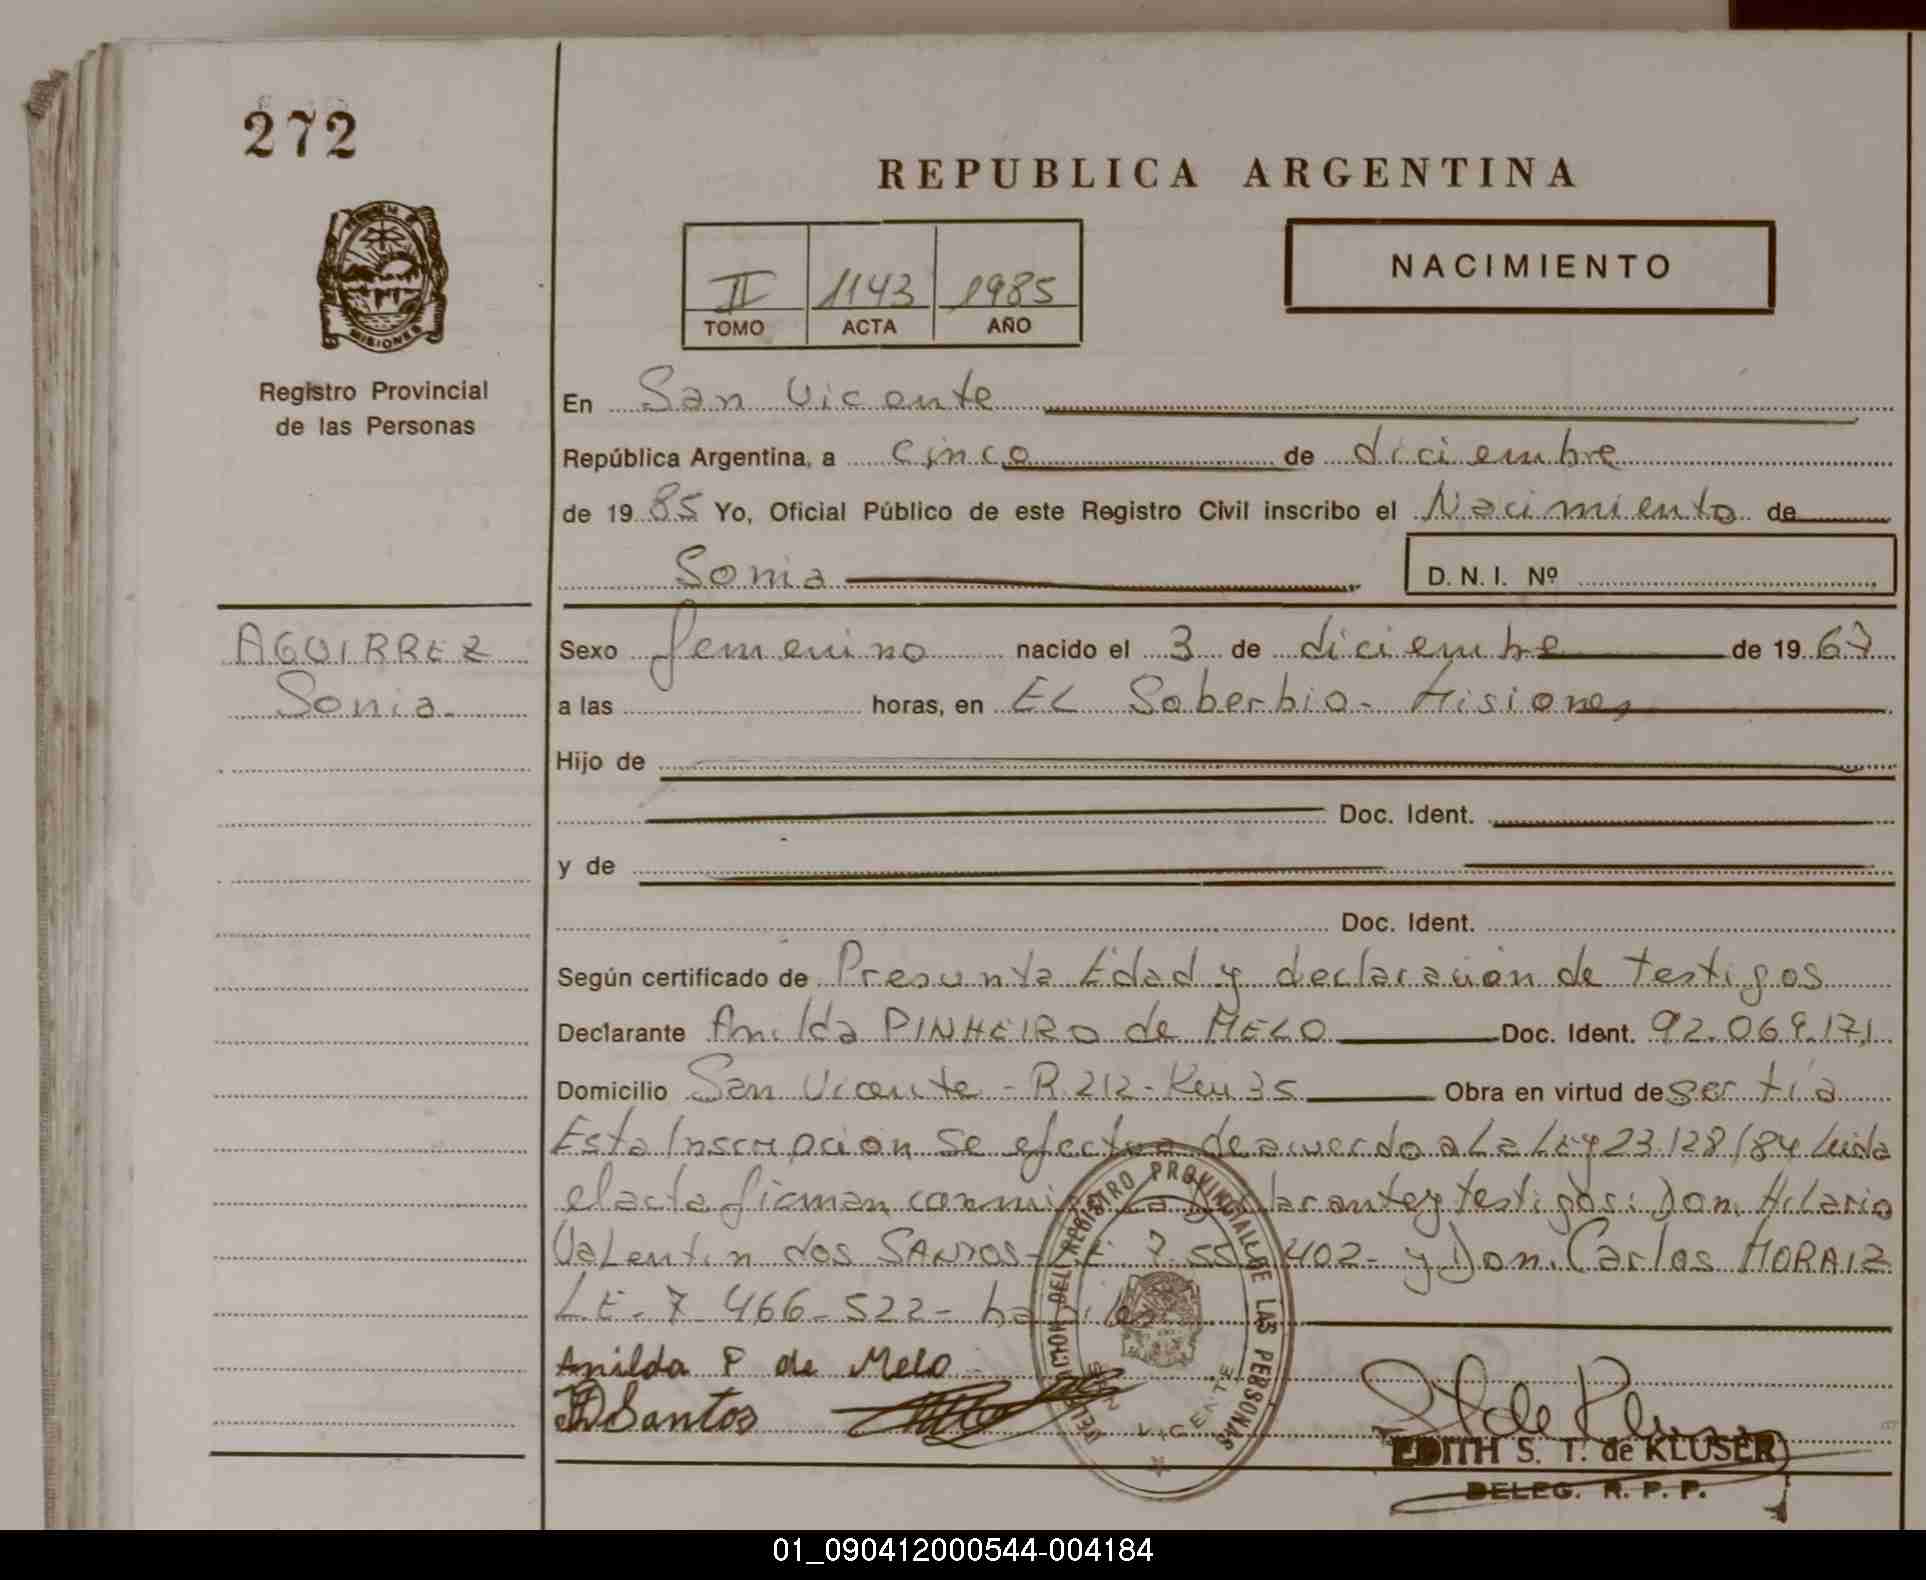 272
REPUBLICA ARGENTINA
II 1143 1985
TOMO ACTA AÑO
NACIMIENTO
MISIONES
Registro Provincial
de las Personas
En San Vicente
República Argentina, a cinco de diciembre
de 1985 Yo, Oficial Público de este Registro Civil inscribo el Nacimiento de
Sonia D. N. I. Nº
AGUIRREZ
Sonia.
Sexo femenino nacido el 3 de diciembre de 1967
a las horas, en EL Soberbio - Misiones
Hijo de
Doc. Ident.
y de
Doc. Ident.
Según certificado de Presunta Edad y declaración de testigos
Declarante Anilda PINHEIRO de MELO Doc. Ident. 92.069.171
Domicilio San Vicente - R. 212 - Km 35 Obra en virtud de ser tía
Esta Inscripción se efectua de acuerdo a La Ley 23.128/84 Leida
el acta firman conmigo La Declarante y testigos: Don. Hilario
Valentin dos SANTOS - 7.55 402 - y Don. Carlos MORAIZ
L.E. - 7 466 - 522 - habiles
Anilda P de Melo
D Santos
DELEGACION DEL REGISTRO PROVINCIAL DE LAS PERSONAS
SAN VICENTE
EDITH S. T. de KLUSER
DELEG. R. P. P.
01_090412000544-004184